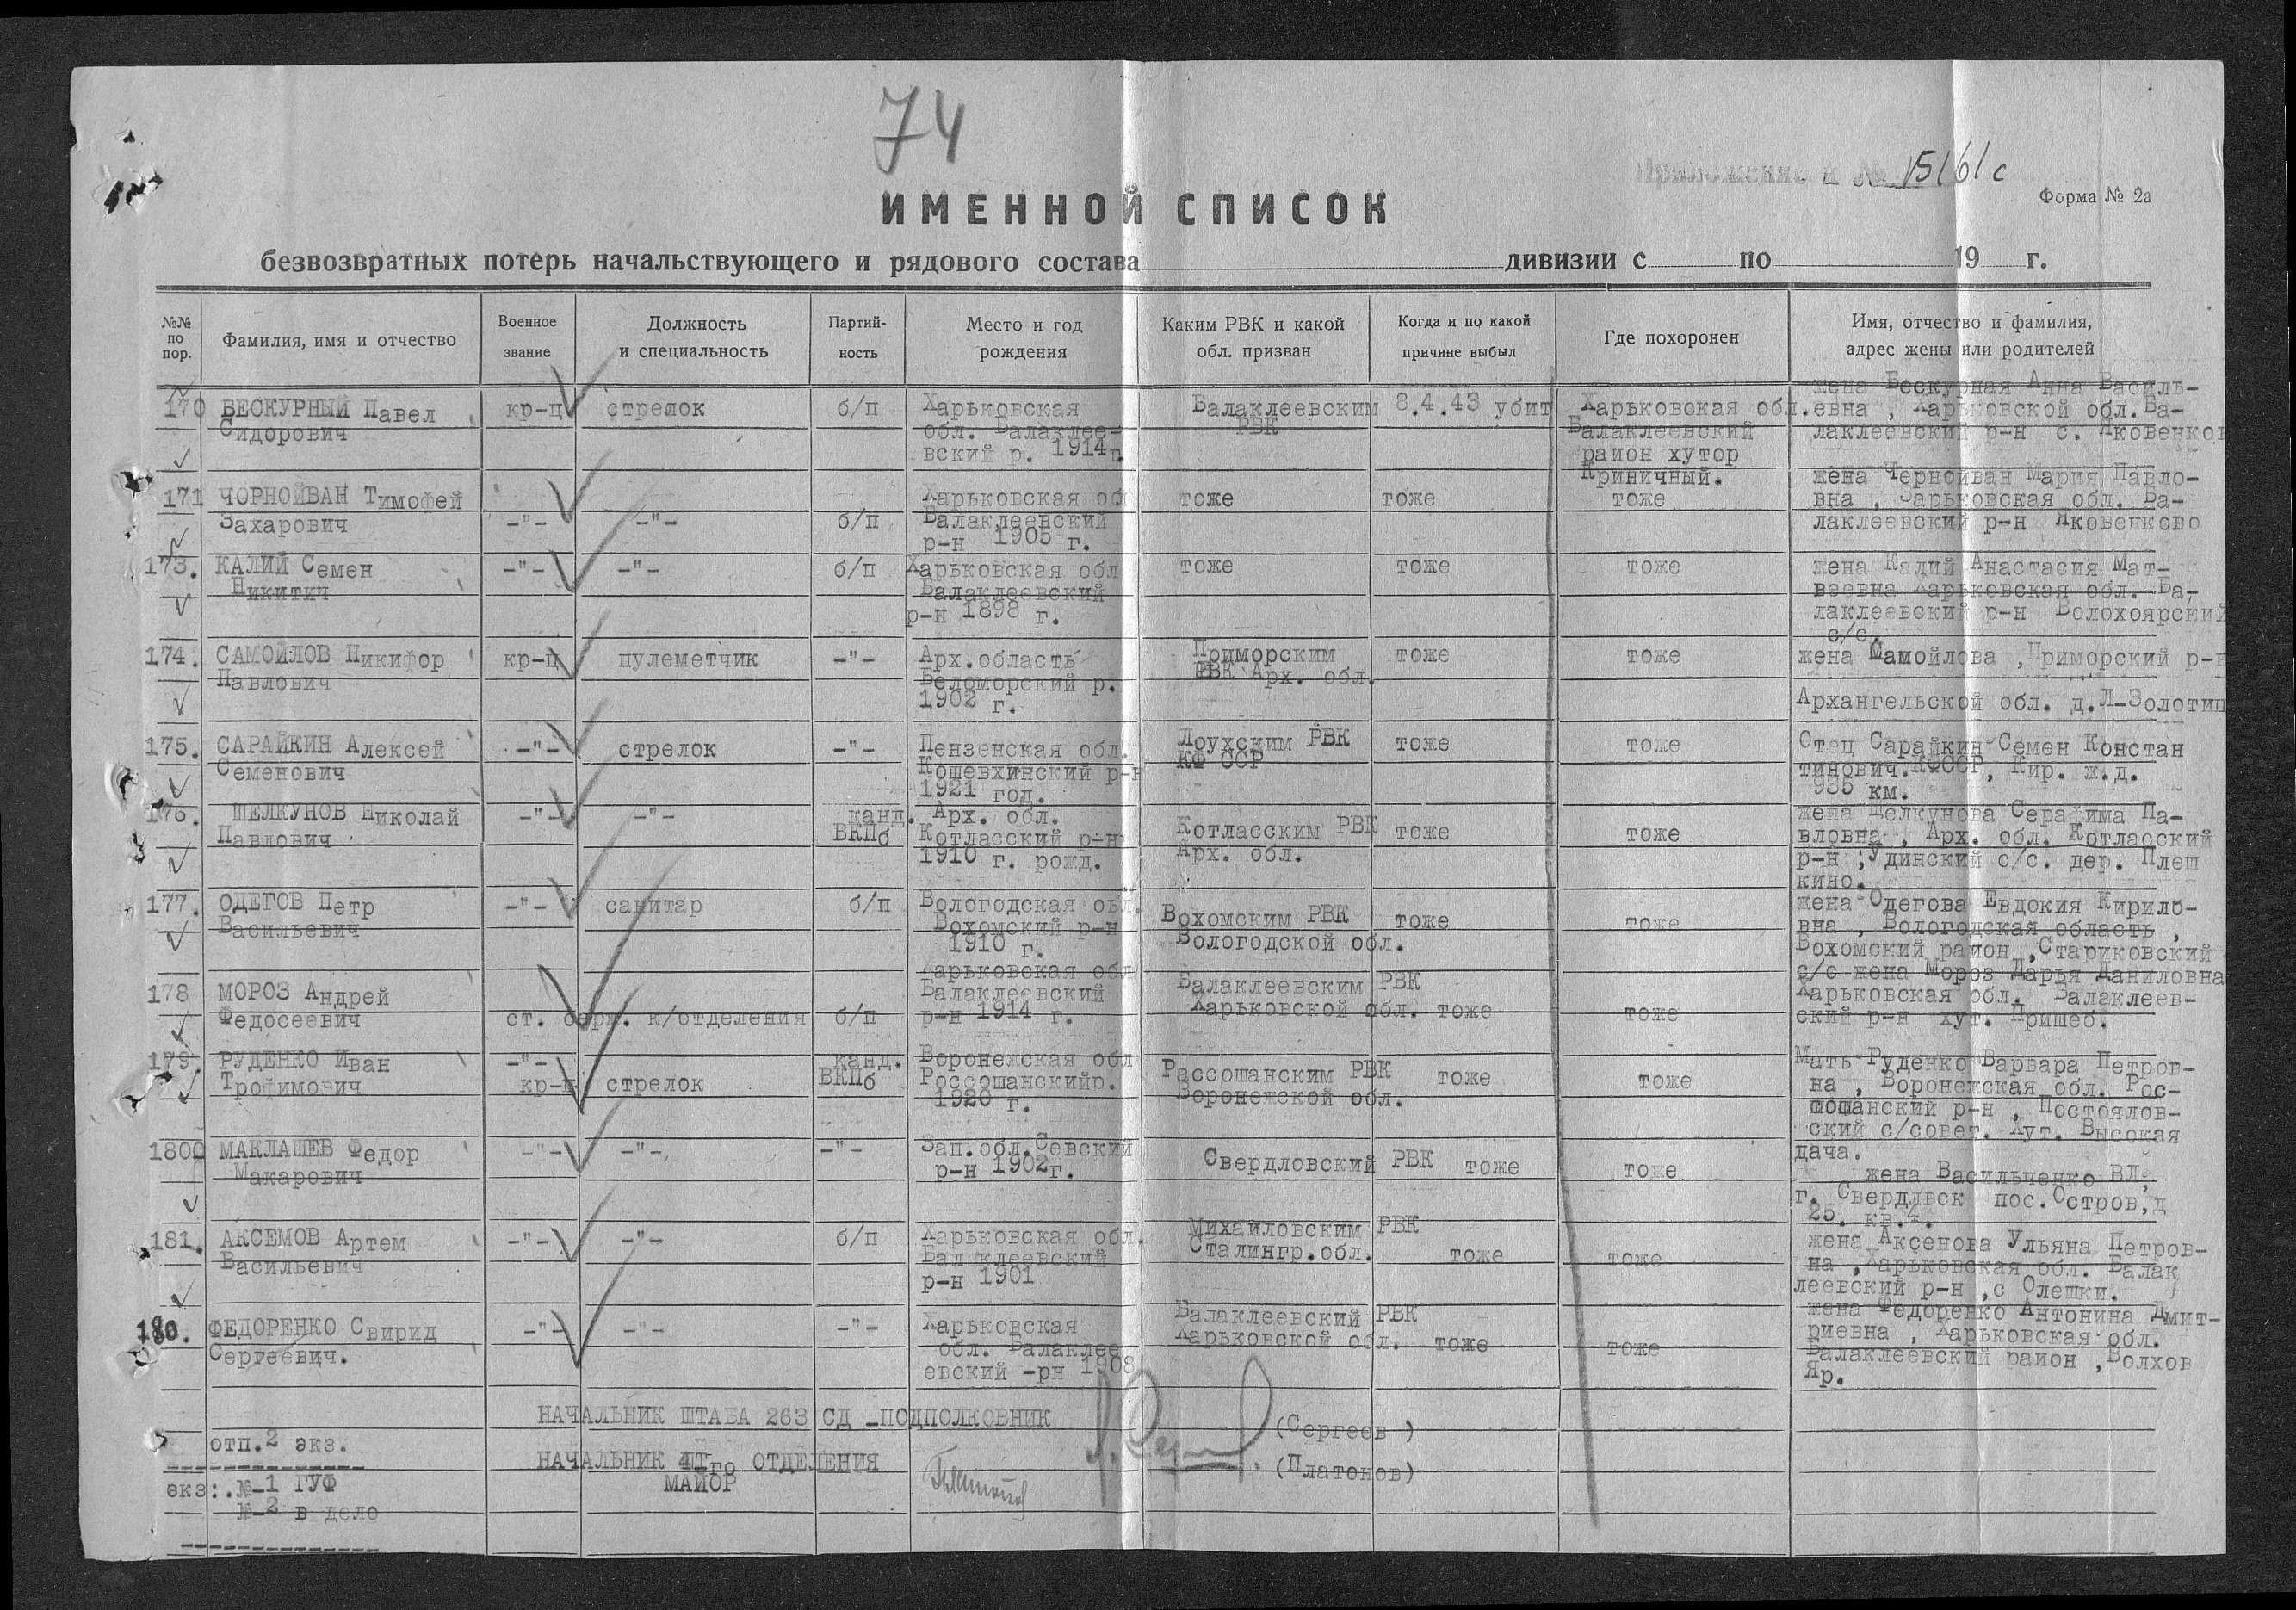 74
Приложение к № 15161с
Форма № 2а
ИМЕННОЙ СПИСОК
безвозвратных потерь начальствующего и рядового состава дивизии с по 19 г.
№№ по пор.
Фамилия, имя и отчество
Военное звание
Должность и специальность
Партий- ность
Место и год рождения
Каким РВК и какой обл. призван
Когда и по какой причине выбыл
Где похоронен
Имя, отчество и фамилия, адрес жены или родителей
170 БЕСКУРНЫЙ Павел Сидорович
кр-ц
стрелок
б/п
Харьковская
обл. Балаклее-
вский р. 1914г.
Балаклеевским
РВК
8.4.43 убит
Харьковская обл.
Балаклеевский
район хутор
Криничный.
жена Бескурная Анна Василь-
евна , Харьковской обл. Ба-
лаклеевский р-н с. Яковенков
171 ЧОРНОЙВАН Тимофей
Захарович
-"-
-"-
б/п
Харьковская об
Балаклеевский
р-н 1905 г.
тоже
тоже
тоже
жена Чернойван Мария Павло-
вна , Харьковская обл. Ба-
лаклеевский р-н Яковенково
173. КАЛИЙ Семен
Никитич
-"-
-"-
б/п
Харьковская обл
Балаклеевский
р-н 1898 г.
тоже
тоже
тоже
жена Калий Анастасия Мат-
веевна Харьковская обл. Ба-
лаклеевский р-н Волохоярский
с/с.
174. САМОЙЛОВ Никифор
Павлович
кр-ц
пулеметчик
-"-
Арх.область
Беломорский р.
1902 г.
Приморским
РВК Арх. обл.
тоже
тоже
жена Самойлова , Приморский р-н
Архангельской обл. д.Л-Золотиц
175. САРАЙКИН Алексей
Семенович
-"-
стрелок
-"-
Пензенская обл.
Кошевхинский р-н
1921 год.
Лоухским РВК
КФ ССР
тоже
тоже
Отец Сарайкин Семен Констан
тинович.КФССР, Кир. ж.д.
935 км.
176. ШЕЛКУНОВ Николай
Павлович
-"-
-"-
канд.
ВКПб
Арх. обл.
Котласский р-н
1910 г. рожд.
Котласским РВК
Арх. обл.
тоже
тоже
жена Шелкунова Серафима Па-
вловна , Арх. обл. Котласский
р-н ,Удинский с/с. дер. Плеш
кино.
177. ОДЕГОВ Петр
Васильевич
-"-
санитар
б/п
Вологодская обл.
Вохомский р-н
1910 г.
Вохомским РВК
Вологодской обл.
тоже
тоже
жена Одегова Евдокия Кирило-
вна , Вологодская область ,
Вохомский район ,Стариковский
с/с
178 МОРОЗ Андрей
Федосеевич
ст. серж.
к/отделения
б/п
Харьковская обл
Балаклеевский
р-н 1914 г.
Балаклеевским РВК
Харьковской обл.
тоже
тоже
жена Мороз Дарья Даниловна
Харьковская обл. Балаклеев-
ский р-н хут. Пришеб.
179. РУДЕНКО Иван
Трофимович
-"-
кр-ц
стрелок
канд.
ВКПб
Воронежская обл
Россошанскийр.
1920 г.
Рассошанским РВК
Воронежской обл.
тоже
тоже
Мать Руденко Варвара Петров-
на , Воронежская обл. Рос-
сошанский р-н , Постоялов-
ский с/совет. Хут. Высокая
дача.
1800 МАКЛАШЕВ Федор
Макарович
-"-
-"-
-"-
Зап.обл.Севский
р-н 1902г.
Свердловский РВК
тоже
тоже
жена Васильченко ВЛ,
г. Свердлвск пос.Остров,д
25. кв.4.
181. АКСЕМОВ Артем
Васильевич
-"-
-"-
б/п
Харьковская обл.
Балаклеевский
р-н 1901
Михаиловским РВК
Сталингр.обл.
тоже
тоже
жена Аксенова Ульяна Петров-
на ,Харьковская обл. Балак
леевский р-н ,с Олешки.
180. ФЕДОРЕНКО Свирид
Сергеевич.
-"-
-"-
-"-
Харьковская
обл. Балаклее
евский -рн 1908
Балаклеевский РВК
Харьковской обл.
тоже
тоже
жена Федоренко Антонина Дмит-
риевна , Харьковская обл.
Балаклеевский район ,Волхов
Яр.
НАЧАЛЬНИК ШТАБА 263 СД -ПОДПОЛКОВНИК
(Сергеев )
отп.2 экз.
НАЧАЛЬНИК 4го ОТДЕЛЕНИЯ
МАЙОР
(Платонов)
экз:.№-1 ГУФ
№-2 в дело